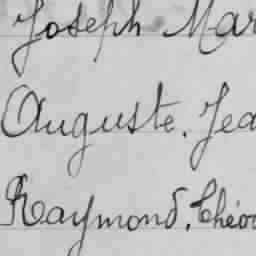 Joseph Mar
Auguste. Jea
Raymond. Théo